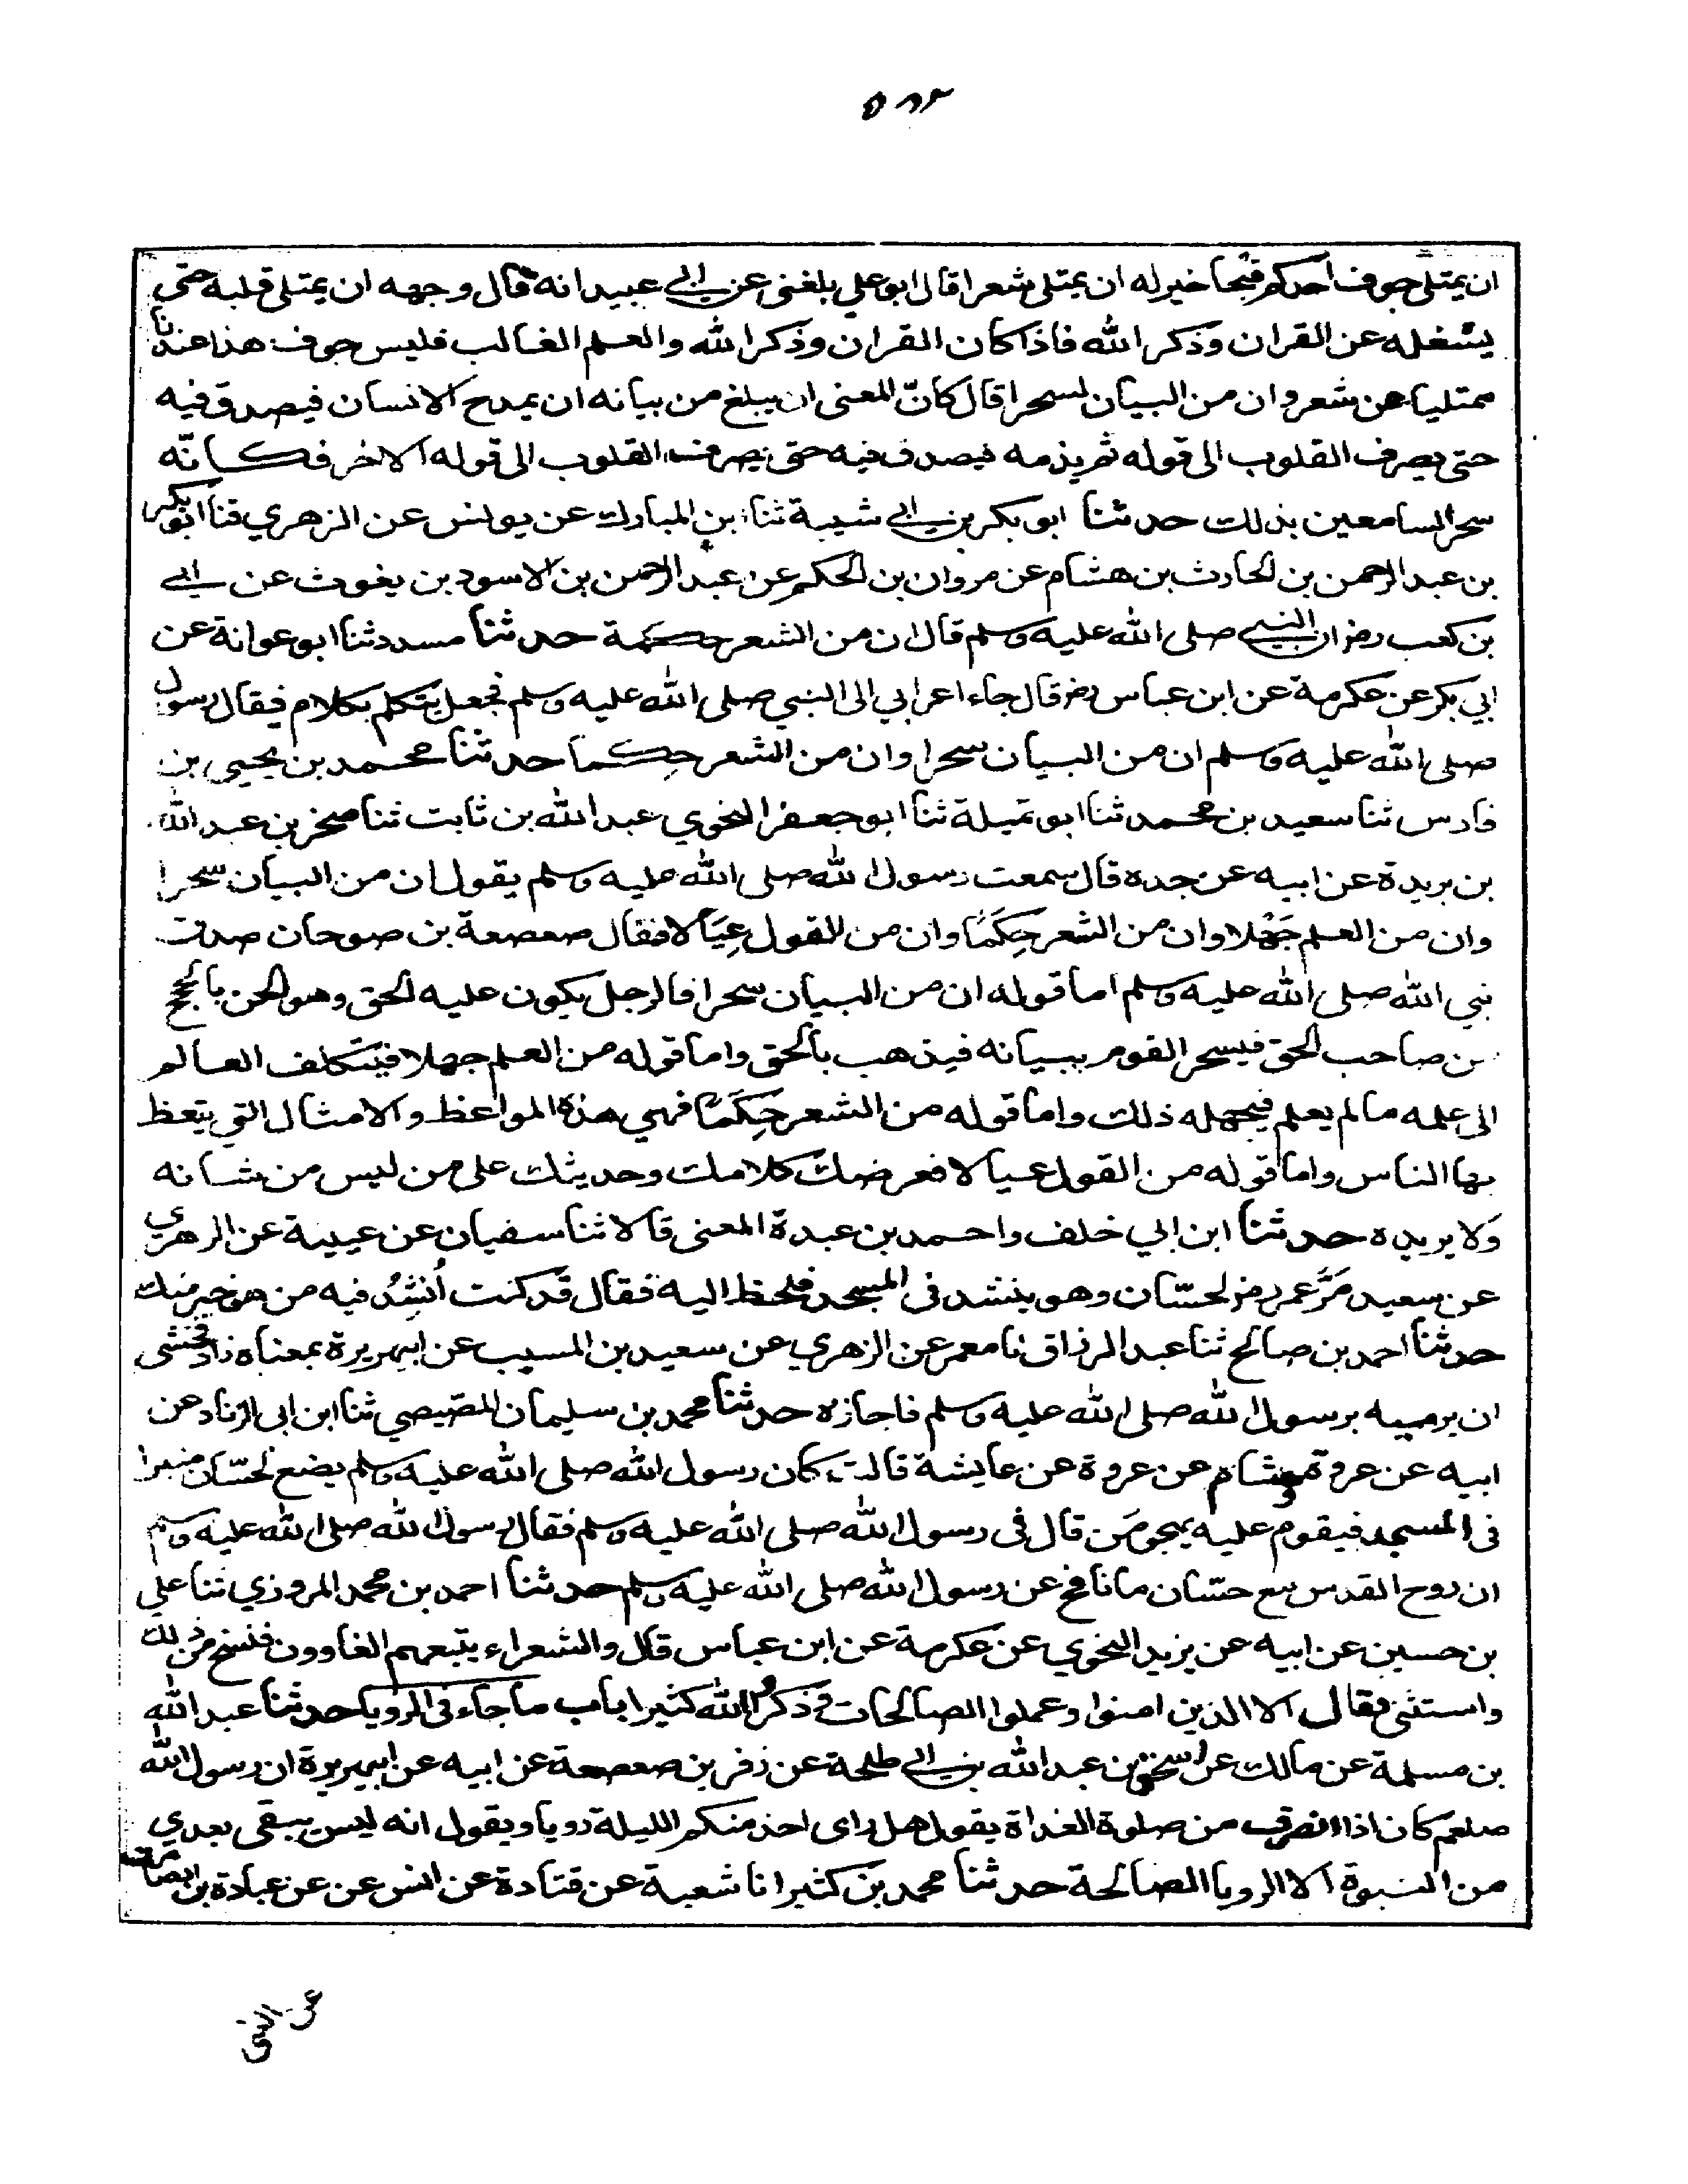 ان يمتلى جوف احدكم قيحا خير له ان يمتلى شعرا قال ابو علي بلغنى عن ابي عبيد انه قال وجهه ان يمتلى قلبه حتى
يشغله عن القران وذكر الله فاذا كان القران وذكر الله والعلم الغالب فليس جوف هذا عندنا
ممتليا من شعر وان من البيان لسحرا قال كانّ المعنى ان يبلغ من بيانه ان يمدح الانسان فيصدق فيه
حتى يصرف القلوب الى قوله ثم يذمه فيصدق فيه حتى يصرف القلوب الى قوله الاخر فكانّه
سحر السامعين بذلك حدثنا ابو بكر بن ابي شيبة ثنا ابن المبارك عن يونس عن الزهري ثنا ابو بكر
بن عبد الرحمن بن الحارث بن هشام عن مروان بن الحكم عن عبد الرحمن بن الاسود بن يغوث عن ابي
بن كعب رضـ ان النبي صلى الله عليه وسلم قال ان من الشعر حكمة حدثنا مسدد ثنا ابو عوانة عن
ابي بكر عن عكرمة عن ابن عباس رضـ قال جاء اعرابي الى النبي صلى الله عليه وسلم فجعل يتكلم بكلام فيقال رسول
صلى الله عليه وسلم ان من البيان سحرا وان من الشعر حِكما حدثنا محمد بن يحيى بن
فارس ثنا سعيد بن محمد ثنا ابو تميلة ثنا ابو جعفر النحوي عبد الله بن ثابت ثنا صخر بن عبد الله
بن بريدة عن ابيه عن جده قال سمعت رسول الله صلى الله عليه وسلم يقول ان من البيان سحرا
وان من العلم جَهْلا وان من الشعر حِكَمًا وان من القول عِيَالا فقال صعصعة بن صوحان صدق
نبي الله صلى الله عليه وسلم اما قوله ان من البيان سحرا فالرجل يكون عليه الحق وهو الحن بالحجج
من صاحب الحق فيسحر القوم ببيانه فيذهب بالحق واما قوله من العلم جهلا فيتكلف العالم
الى علمه ما لم يعلم فيجهله ذلك واما قوله من الشعر حِكَمًا فهي هذه المواعظ والامثال التي يتعظ
بها الناس واما قوله من القول عيالا فعرضك كلامك وحديثك على من ليس من شانه
ولا يريده حدثنا ابن ابي خلف واحمد بن عبدة المعنى قالا ثنا سفيان عن عيينة عن الزهري
عن سعيد مَرَّ عمر رضـ لحسّان وهو ينشد فى المسجد فلحظ اليه فقال قد كنت اُنشِدُ فيه من هو خير منك
حدثنا احمد بن صالح ثنا عبد الرزاق نا معمر عن الزهري عن سعيد بن المسيب عن ابي هريرة بمعناه زاد فخشى
ان يرميه برسول الله صلى الله عليه وسلم فاجازه حدثنا محمد بن سليمان المصّيصي ثنا ابن ابي الزناد عن
ابيه عن عروة وهشام عن عروة عن عايشة قالت كان رسول الله صلى الله عليه وسلم يضع لحسّان منبرا
فى المسجد فيقوم عليه يهجو مَن قال فى رسول الله صلى الله عليه وسلم فقال رسول الله صلى الله عليه وسلم
ان روح القدس مع حسّان ما نافح عن رسول الله صلى الله عليه وسلم حدثنا احمد بن محمد المروزي ثنا علي
بن حسين عن ابيه عن يزيد النحوي عن عكرمة عن ابن عباس قال والشعراء يتبعهم الغاوون فنسخ من ذلك
واستثنى فقال الا الذين امنوا وعملوا الصالحات وذكروا الله كثيرا باب ما جاء فى الرويا حدثنا عبد الله
بن مسلمة عن مالك عن اسحق بن عبد الله بن ابي طلحة عن زفر بن صعصعة عن ابيه عن ابي هريرة ان رسول الله
صلعم كان اذا انصرف من صلوة الغداة يقول هل راى احد منكم الليلة رويا ويقول انه ليس يبقى بعدي
من النبوة الا الرويا الصالحة حدثنا محمد بن كثير انا شعبة عن قتادة عن انس عن عن عبادة بن الصامت
عن النبى